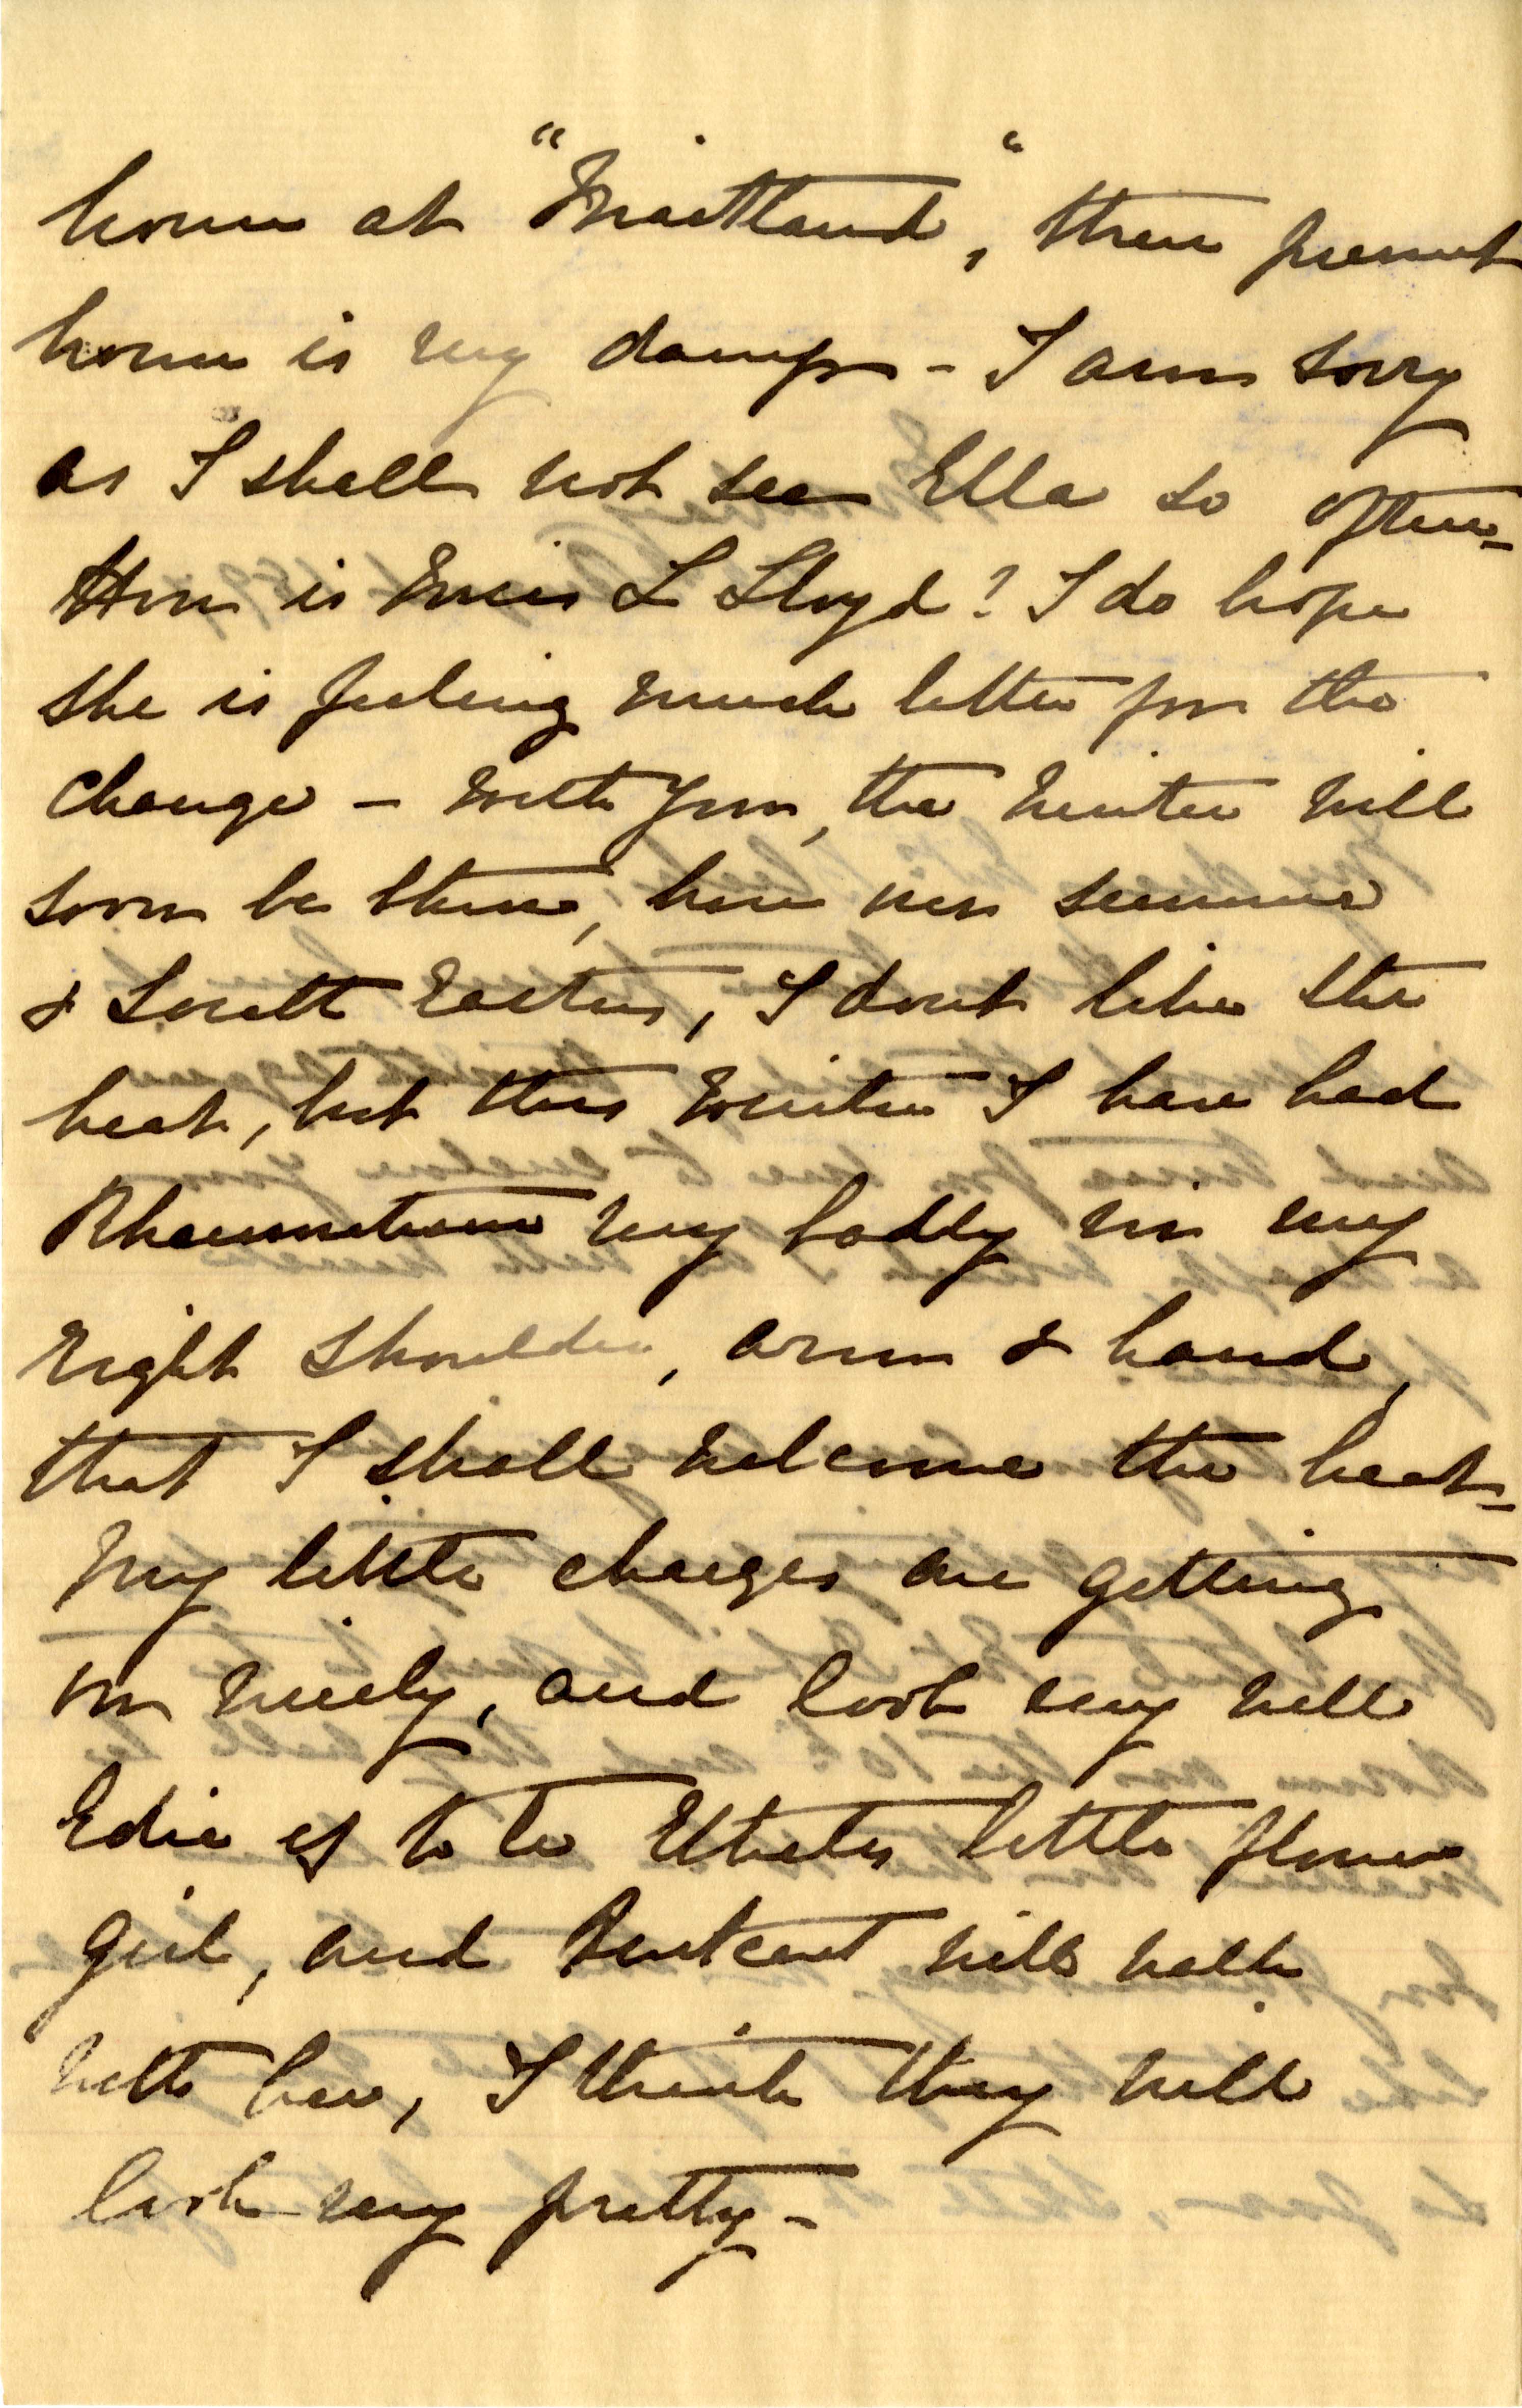 home at "Maitland", their present
home is very damp - I am sorry
as I shall not see Ella so often -
How is Miss L Lloyd? I do hope
she is feeling much better for the
change - with you, the winter will
soon be there, here our summer
& South Easters, I dont like the
heat, but this winter I have had
Rheumatism very badly in my
right shoulder, arm & hand,
that I shall welcome the heat -
My little charges are getting
on nicely, and look very well
Edie is to be Ethels little flower
girl, and will walk
with her, I think they will
look very pretty -